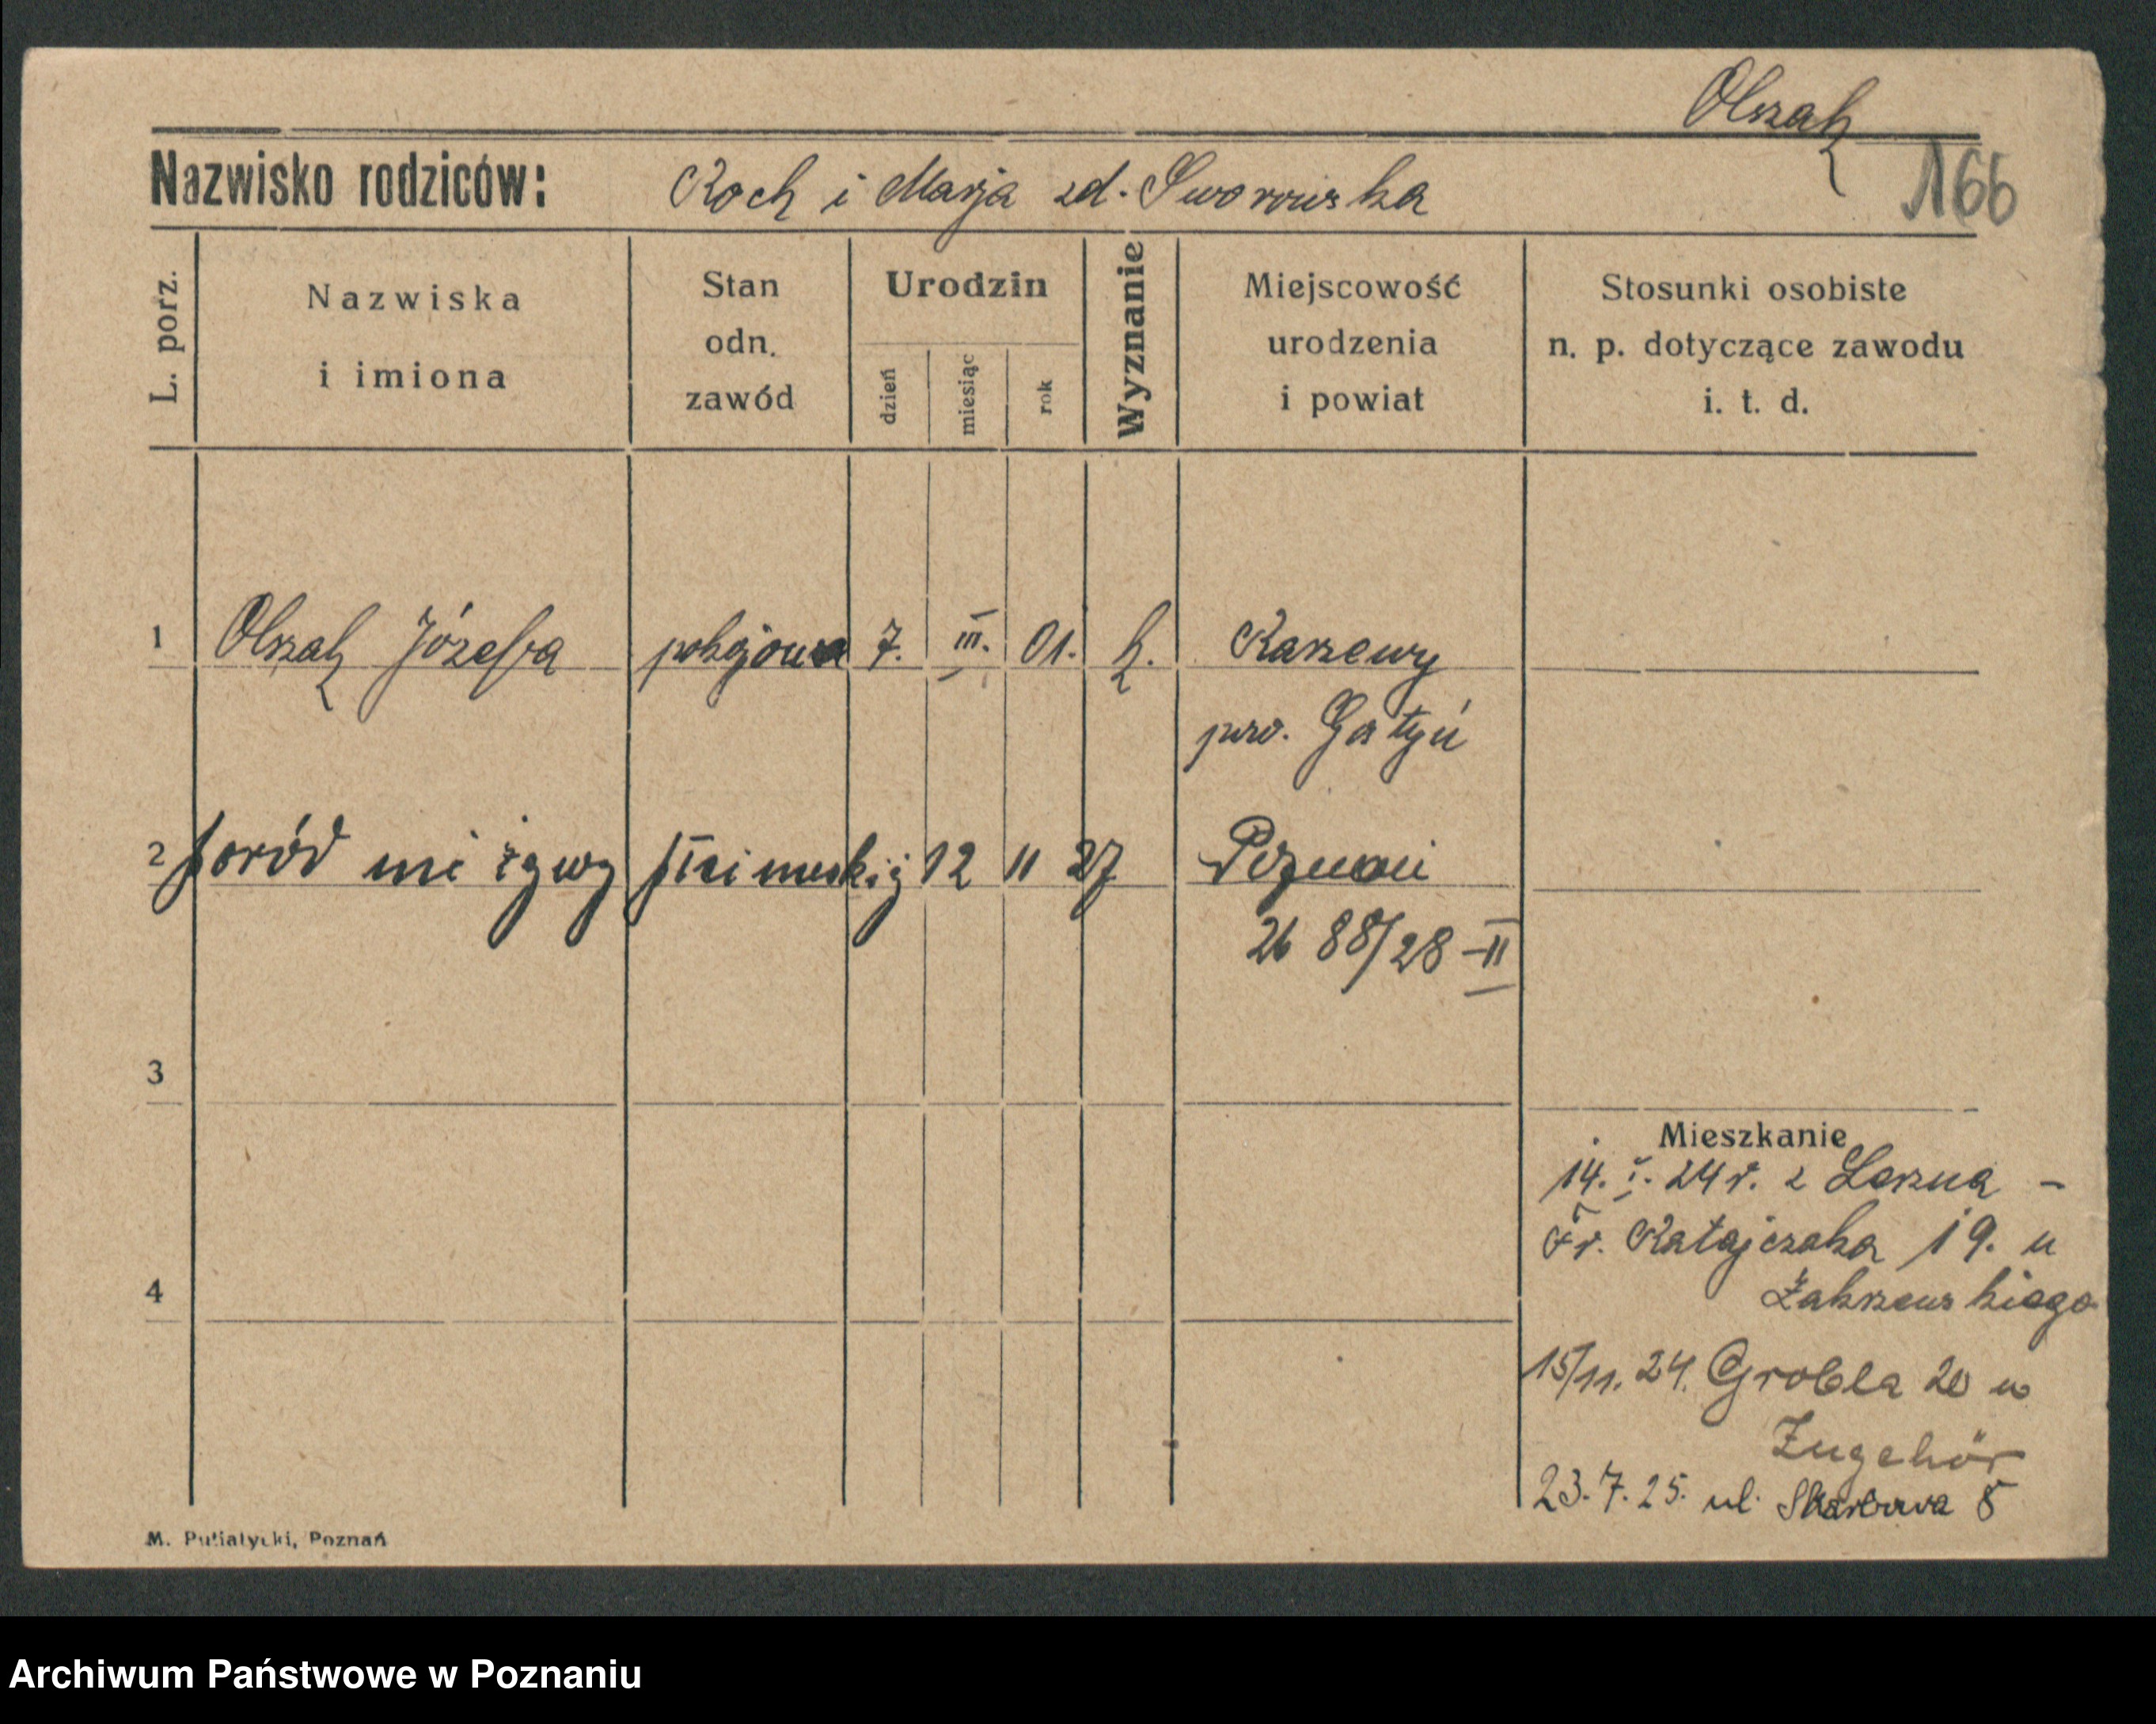 Olszak
Nazwisko rodziców: Roch i Marja zd. Sworowska
166
L. porz.
Nazwiska
i imiona
Stan
odn.
zawód
Urodzin
dzień
miesiąc
rok
Wyznanie
Miejscowość
urodzenia
i powiat
Stosunki osobiste
n. p. dotyczące zawodu
i. t. d.
1 Olszak Józefa pokojowa 7. III. 01. k. Karzewy
pow. Gostyń
2 poród nieżywy płci męskiej 12 11 27 Poznań
88/28 II
3
Mieszkanie
14. I. 24 r. z Leszna -
Fr. Ratajczaka 19. u
Zakrzewskiego
4
15/11. 24. Grobla 20 u
Zugehör
23. 7. 25. ul. Skarbowa 5
M. Putiatycki, Poznań
Archiwum Państwowe w Poznaniu